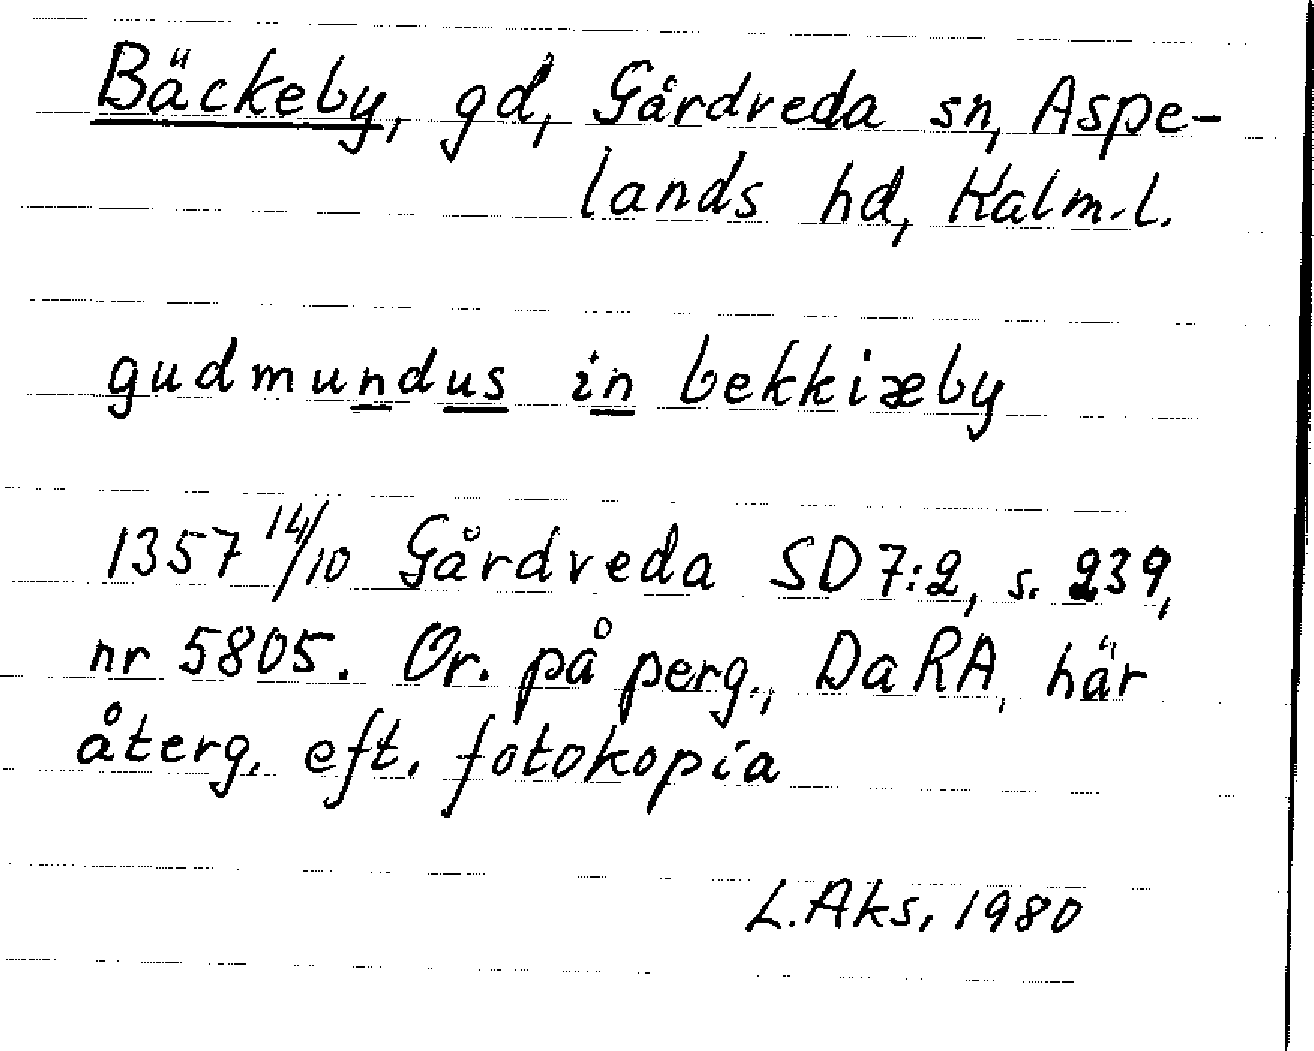 Bäckeby, gd, Gårdveda sn, Aspe-
lands hd, Kalm.l.
gudmundus in bekkiæby
1357 14/10 Gårdveda SD 7:2, s. 239,
nr 5805. Or. på perg., DaRA, här
återg. eft. fotokopia
L.Aks, 1980